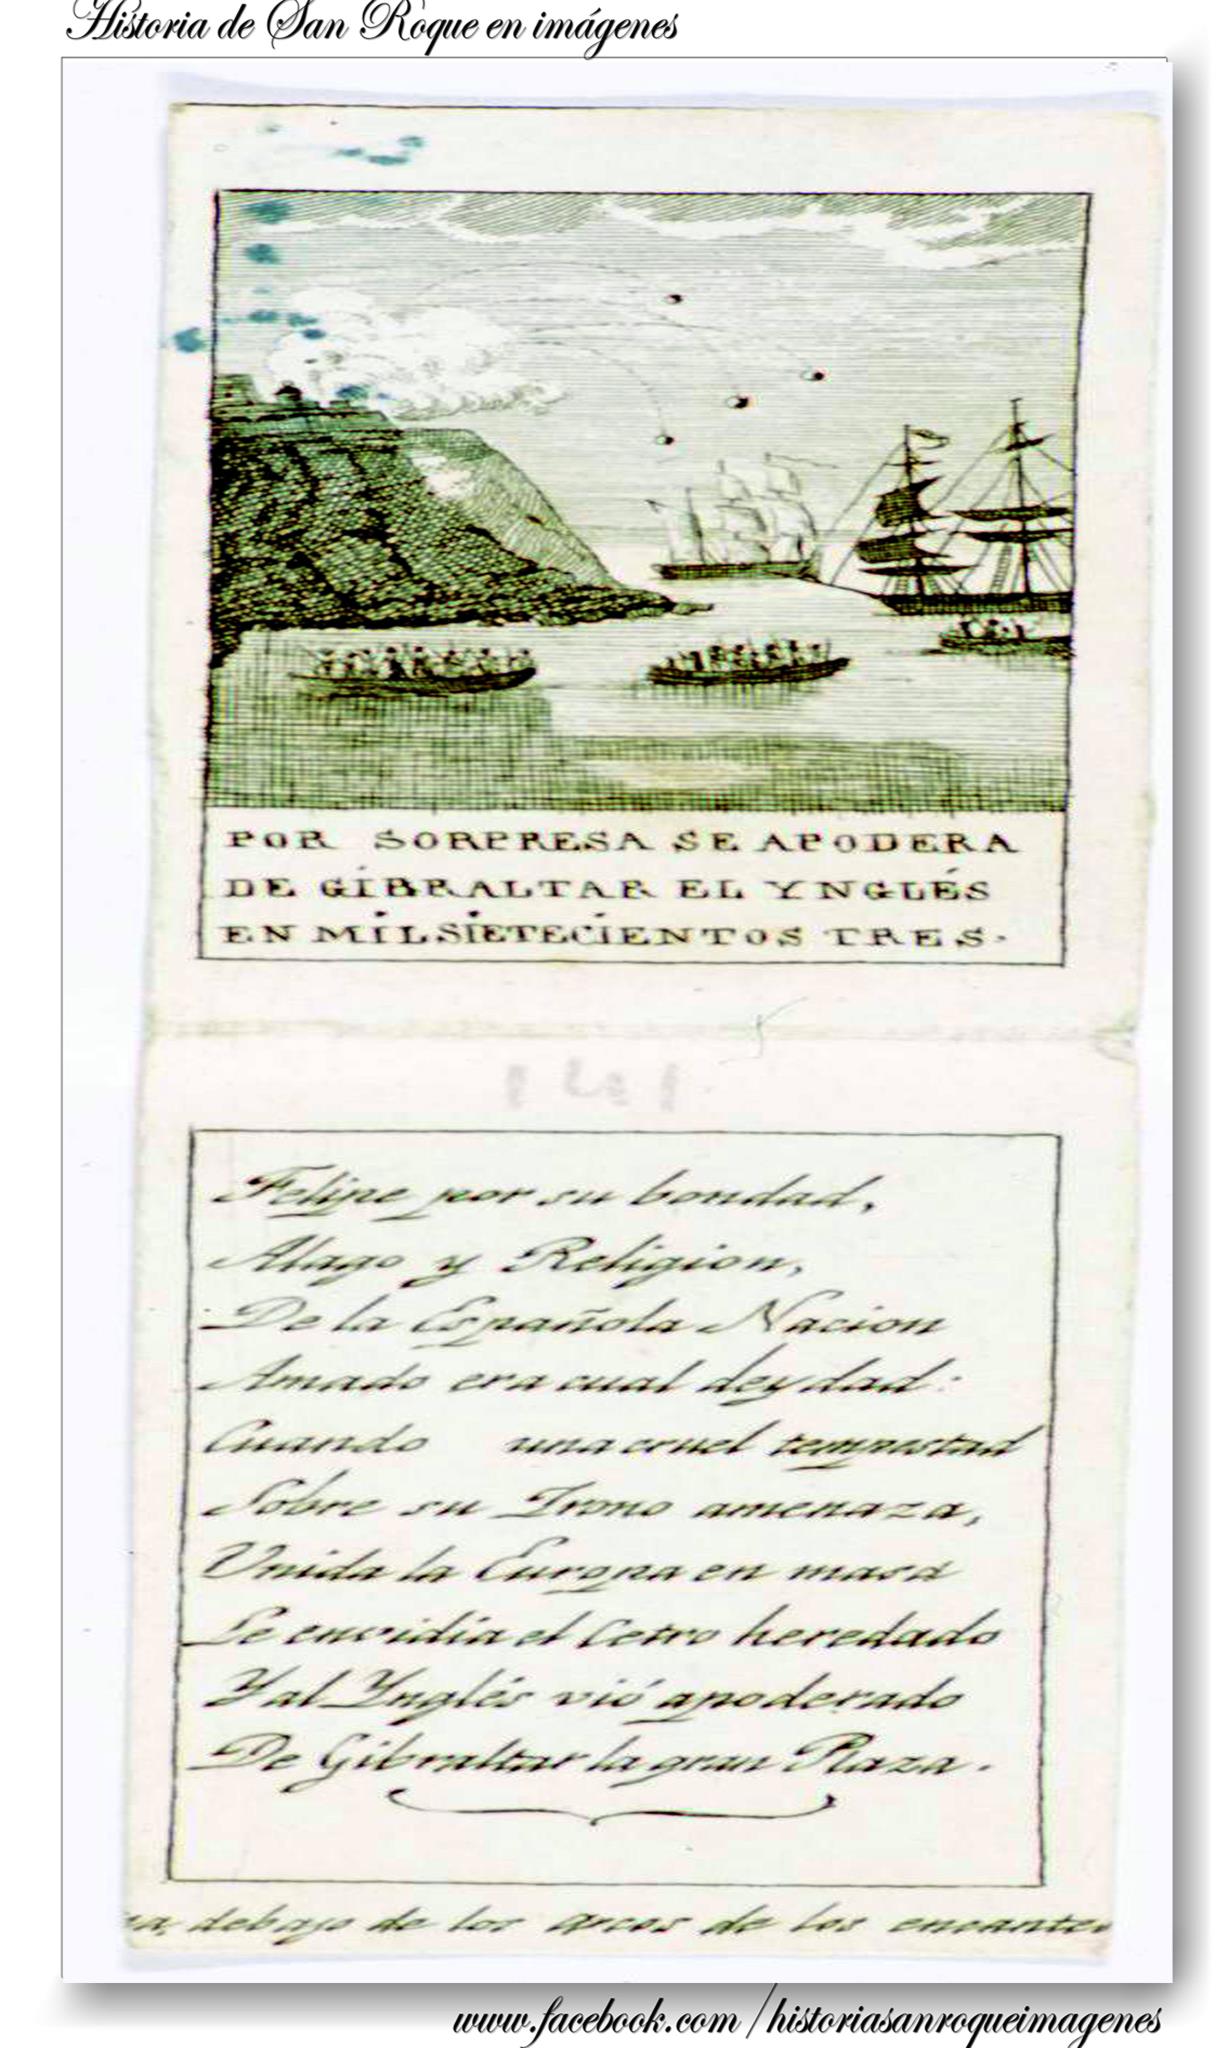 Historia de San Roque en imágenes
POR SORPRESA SE APODERA
DE GIBRALTAR EL YNGLÉS
EN MILSIETECIENTOS TRES.
Felipe por su bondad,
Alago y Religion,
De la Española Nacion
Amado era cual deydad:
Cuando una cruel tempestad
Sobre su Trono amenaza,
Unida la Europa en masa
Le envidia el Cetro heredado
Y al Ynglés vió apoderado
De Gibraltar la gran Plaza.
debajo de los arcos de los encante
www.facebook.com/historiasanroqueimagenes